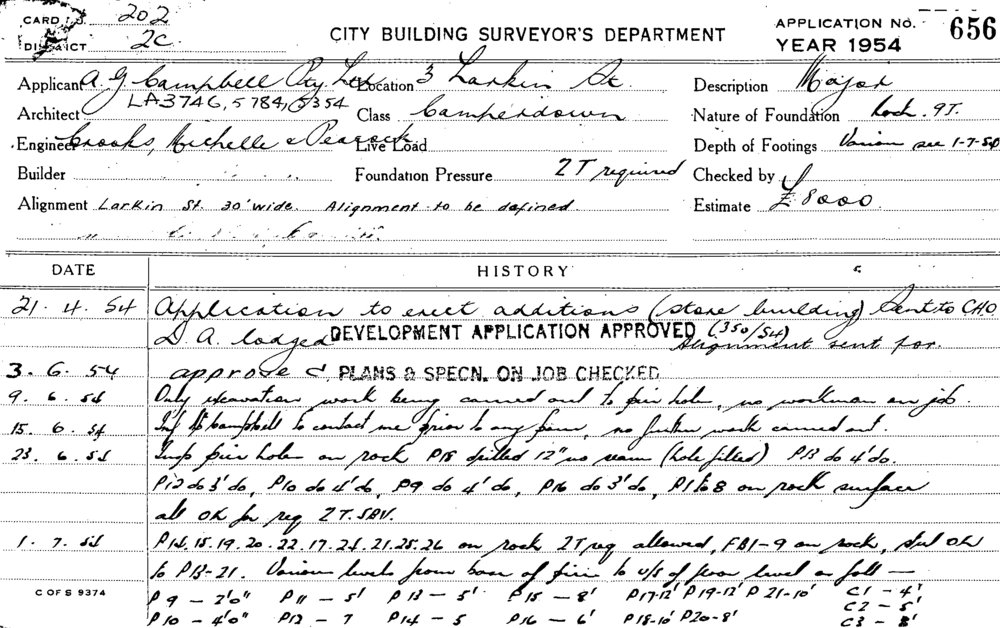 CARD 202
DISTRICT 2C.
CITY BUILDING SURVEYOR'S DEPARTMENT
APPLICATION No. 656
YEAR 1954
Applicant A. G. Campbell Pty. Ltd. Location 3 Larkin St Description Major
LA3746, 5784, 5354
Architect Class Camperdown Nature of Foundation Rock. 9T.
Engineer Crooks, Michelle & Peacock Live Load Depth of Footings Various see 1-7-54
Builder Foundation Pressure 2T required Checked by
Alignment Larkin St. 30' wide. Alignment to be defined. Estimate £8000
DATE HISTORY
21. 4. 54 Application to erect additions (store building) Sent to CHO
D. A. lodged DEVELOPMENT APPLICATION APPROVED (350/54) Alignment sent for.
3. 6. 54 approved PLANS & SPECN. ON JOB CHECKED
9. 6. 54 Only excavation work being carried out to pier holes, no workman on job.
15. 6. 54 Inf Mr Campbell to contact me prior to any piers, no further work carried out.
23. 6. 54 Insp pier holes on rock P18 drilled 12" no seam (hole filled) P13 do 4' do.
P12 do 3' do, P10 do 4' do, P9 do 4' do, P16 do 3' do, P1 to 8 on rock surface
all OK for req 2T.
1. 7. 54 P14.15.19.20.22.17.24.21.25.26 on rock 2T req allowed, FB1-9 on rock, stul OK
to P13-21. Various levels from base of piers to u/s of floor level as foll —
C OF S 9374
P9 — 2'0" P11 — 5' P13 — 5' P15 — 8' P17-12' P19-12' P21-10' C1 - 4'
C2 - 5'
P10 — 4'0" P12 — 7 P14 — 5 P16 — 6' P18-10' P20-8' C3 - 8'